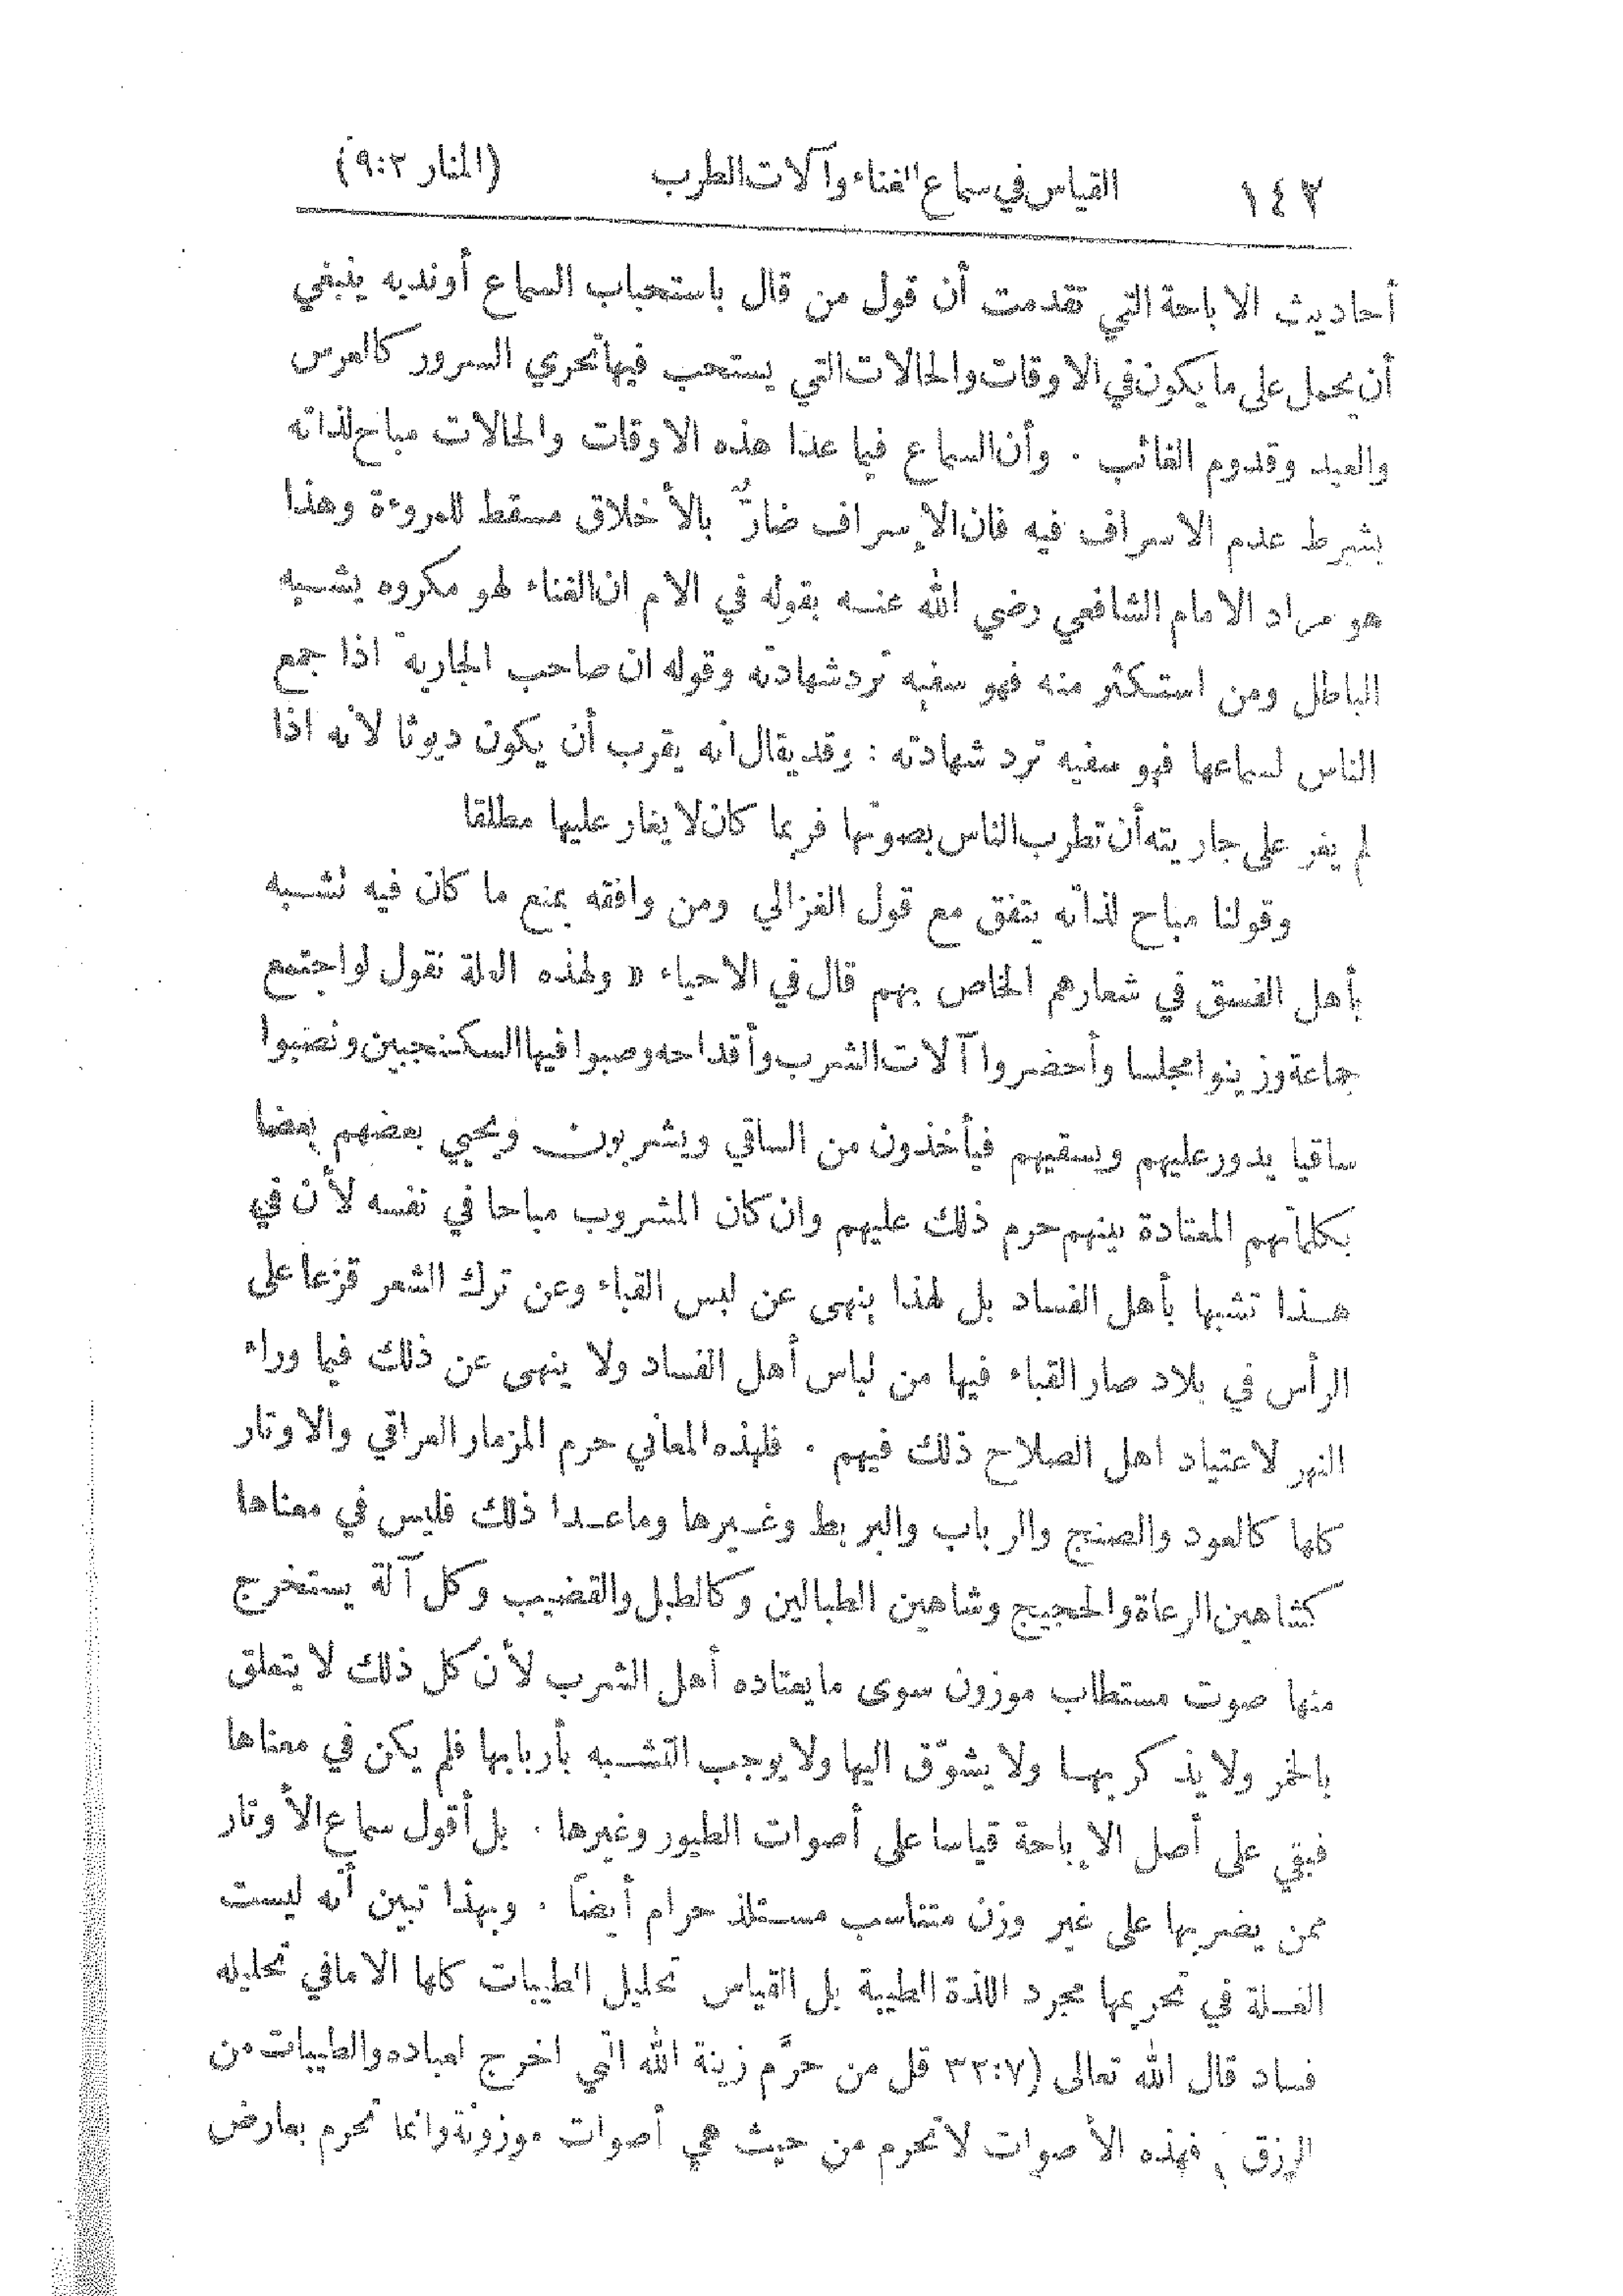 ١٤٢ القياس في سماع الغناء وآلات الطرب (المنار ٩:٢)
أحاديث الاباحة التي تقدمت أن قول من قال باستحباب السماع أوندبه ينبغي
أن يحمل على ما يكون في الاوقات والحالات التي يستحب فيها تحري السرور كالعرس
والعيد وقدوم الغائب . وأن السماع فيما عدا هذه الاوقات والحالات مباح لذاته
بشرط عدم الاسراف فيه فان الإسراف ضارٌّ بالأخلاق مسقط للمروءة وهذا
هو مراد الامام الشافعي رضي الله عنه بقوله في الام ان الغناء لهو مكروه يشبه
الباطل ومن استكثر منه فهو سفيه ترد شهادته وقوله ان صاحب الجارية اذا جمع
الناس لسماعها فهو سفيه ترد شهادته : وقد يقال انه يقرب أن يكون ديوثا لأنه اذا
لم يغر على جاريته أن تطرب الناس بصوتها فربما كان لا يغار عليها مطلقا
وقولنا مباح لذاته يتفق مع قول الغزالي ومن وافقه بمنع ما كان فيه تشبه
بأهل الفسق في شعارهم الخاص بهم قال في الاحياء « ولهذه العلة نقول لو اجتمع
جماعة وزينوا مجلسا وأحضروا آلات الشرب وأقداحه وصبوا فيها السكنجبين ونصبوا
ساقيا يدور عليهم ويسقيهم فيأخذون من الساقي ويشربون ويحيي بعضهم بعضا
بكلماتهم المعتادة بينهم حرم ذلك عليهم وان كان المشروب مباحا في نفسه لأن في
هذا تشبها بأهل الفساد بل لهذا ينهى عن لبس القباء وعن ترك الشعر قزعا على
الرأس في بلاد صار القباء فيها من لباس أهل الفساد ولا ينهى عن ذلك فيما وراء
النهر لاعتياد اهل الصلاح ذلك فيهم . فلهذه المعاني حرم المزمار العراقي والاوتار
كلها كالعود والصنج والرباب والبربط وغيرها وماعدا ذلك فليس في معناها
كشاهين الرعاة والحجيج وشاهين الطبالين وكالطبل والقضيب وكل آلة يستخرج
منها صوت مستطاب موزون سوى مايعتاده أهل الشرب لأن كل ذلك لا يتعلق
بالخمر ولا يذكر بهـا ولا يشوّق اليها ولا يوجب التشبه بأربابها فلم يكن في معناها
فبقي على أصل الإباحة قياسا على أصوات الطيور وغيرها . بل أقول سماع الأوتار
ممن يضربها على غير وزن متناسب مستلذ حرام أيضاً . وبهذا تبين أنه ليست
العلة في تحريمها مجرد اللذة الطيبة بل القياس تحليل الطيبات كلها الا مافي تحليله
فساد قال الله تعالى (٣٢:٧ قل من حرَّم زينة الله التي اخرج لعباده والطيبات من
الرزق ) فهذه الأصوات لا تحرم من حيث هي أصوات موزونة وانما تحرم بعارض